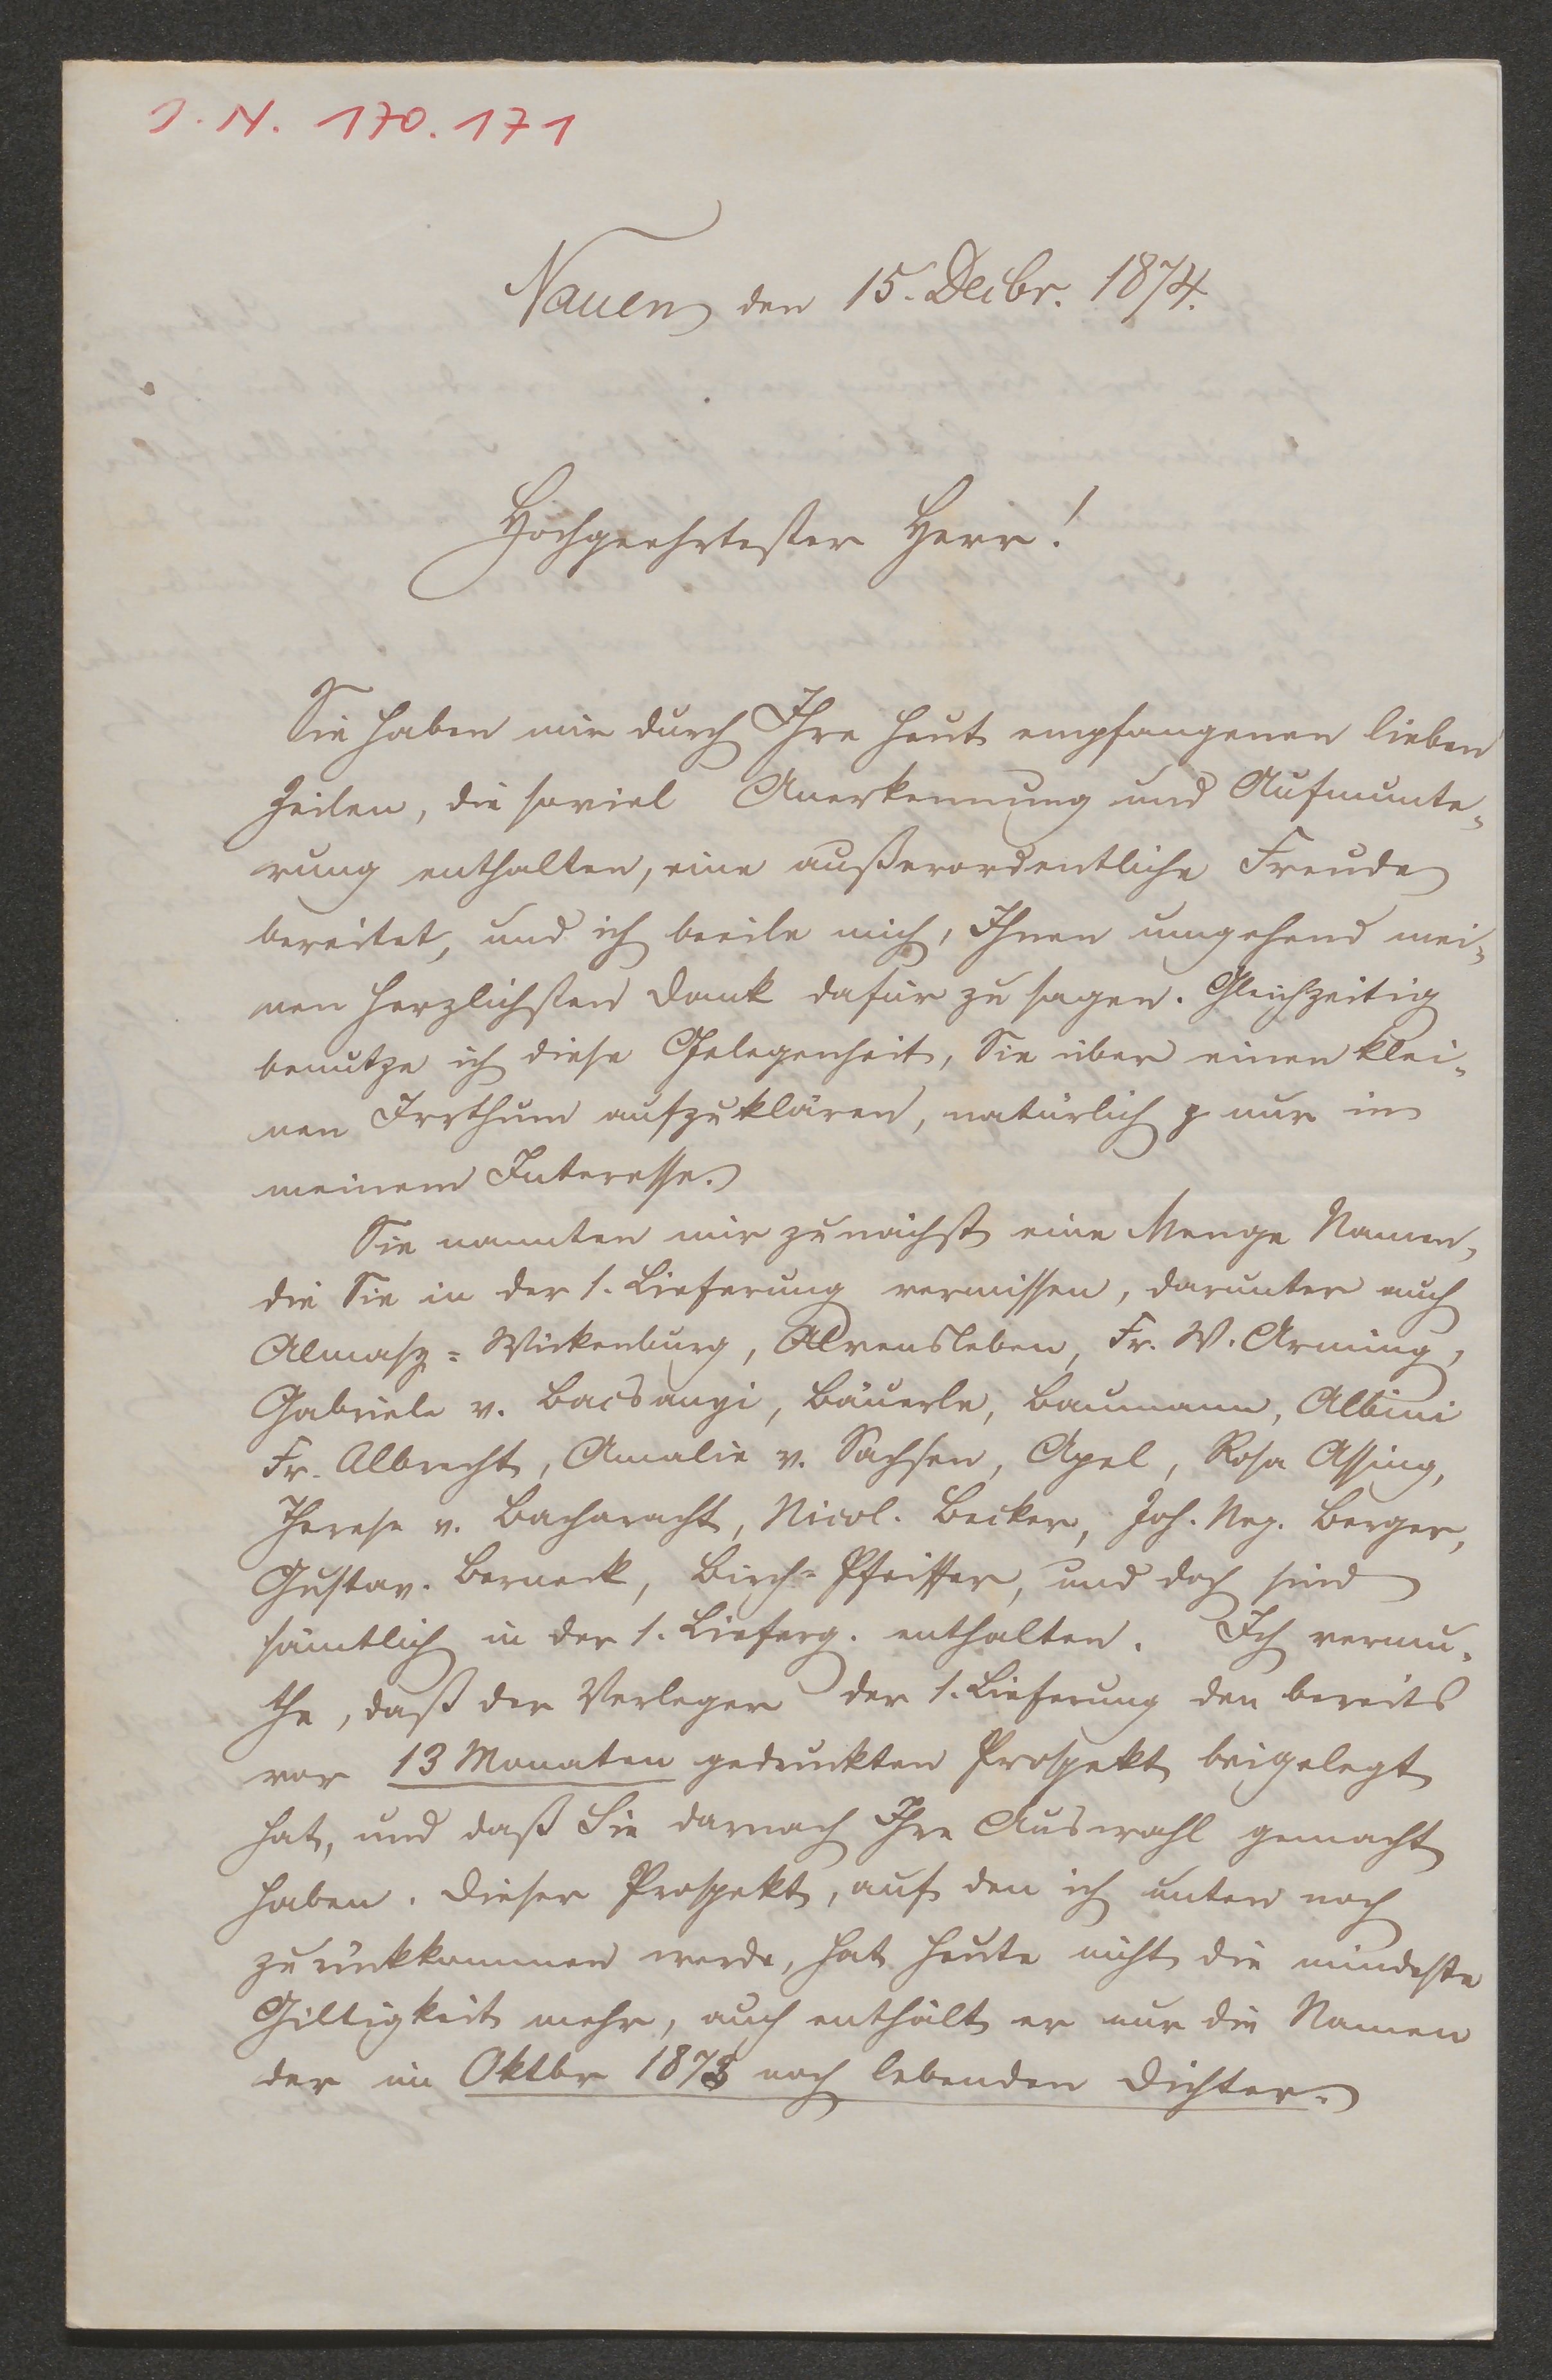 J. N. 170.171
Nauen den 15. Decbr. 1874.
Hochgeehrtester Herr!
Sie haben mir durch Ihre heut empfangenen lieben
Zeilen, die soviel Anerkennung und Aufmunte-
rung enthalten, eine außerordentliche Freude
bereitet, und ich beeile mich, Ihnen umgehend mei-
nen herzlichsten Dank dafür zu sagen. Gleichzeitig
benutze ich diese Gelegenheit, Sie über einen klei-
nen Irrthum aufzuklären, natürlich nur in
meinem Interesse.
Sie nannten mir zunächst eine Menge Namen,
die Sie in der 1. Lieferung vermissen, darunter auch
Almasy=Wickenburg, Alvensleben, Fr. W. Arming,
Gabriele v. Bacsanyi, Bäuerle, Baumann, Albini
Fr. Albrecht, Amalie v. Sachsen, Apel, Rosa Assing,
Therese v. Bacharacht, Nicol. Becker, Joh. Nep. Berger,
Gustav. Berneck, Birch=Pfeiffer, und doch sind
sämtlich in der 1. Lieferg. enthalten. Ich vermu-
the, daß der Verleger der 1. Lieferung den bereits
vor 13 Monaten gedruckten Prospekt beigelegt
hat, und daß Sie darnach Ihre Auswahl gemacht
haben. Dieser Prospekt, auf den ich unten noch
zurückkommen werde, hat heute nicht die mindeste
Giltigkeit mehr, auch enthält er nur die Namen
der im Oktbr 1873 noch lebenden Dichter.